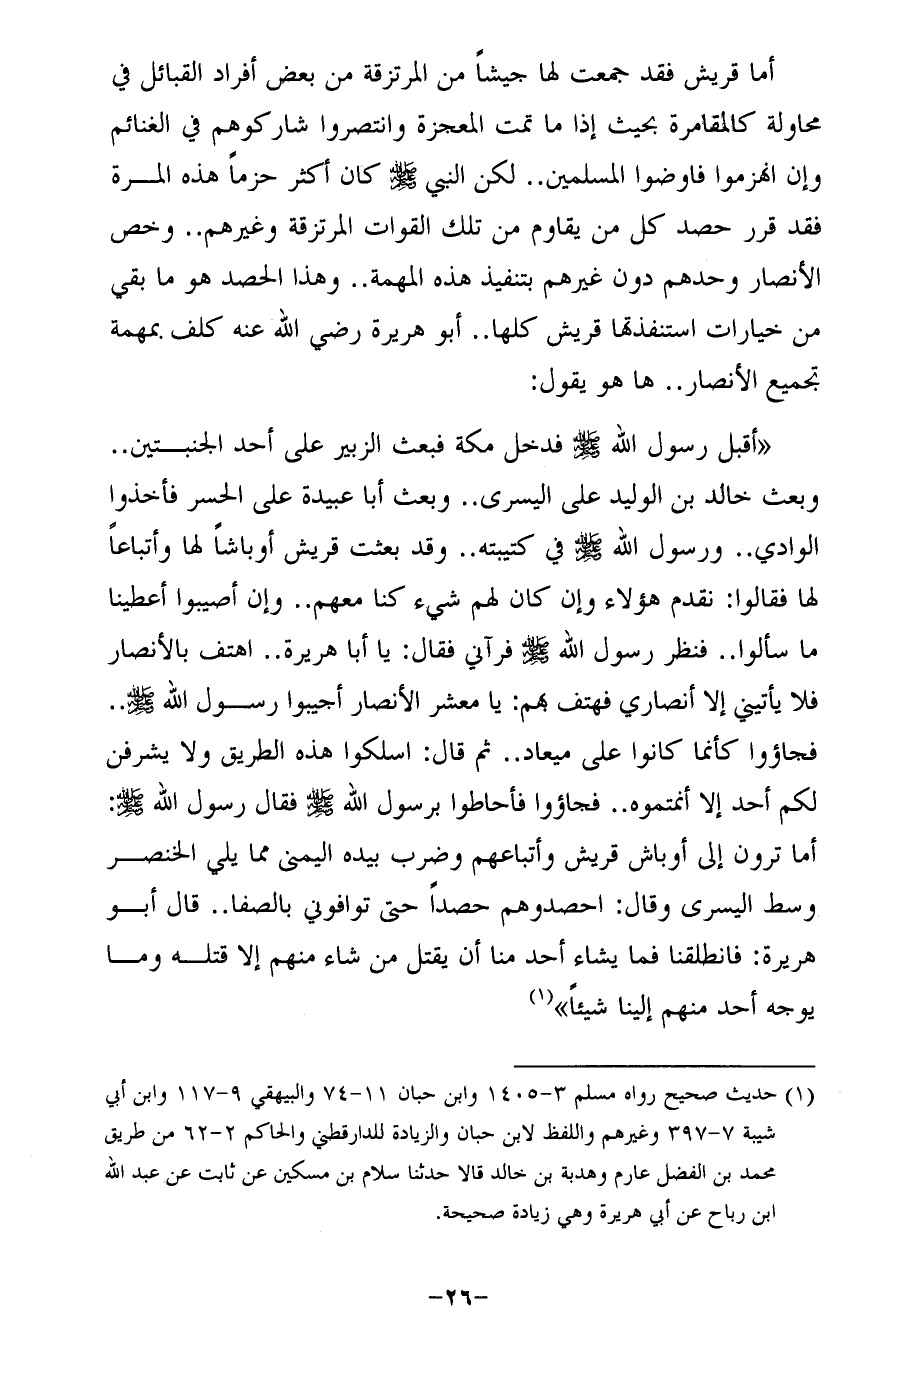 أما قريش فقد جمعت لها جيشاً من المرتزقة من بعض أفراد القبائل في
محاولة كالمقامرة بحيث إذا ما تمت المعجزة وانتصروا شاركوهم في الغنائم
وإن انهزموا فاوضوا المسلمين.. لكن النبي ﷺ كان أكثر حزماً هذه المـــرة
فقد قرر حصد كل من يقاوم من تلك القوات المرتزقة وغيرهم.. وخص
الأنصار وحدهم دون غيرهم بتنفيذ هذه المهمة.. وهذا الحصد هو ما بقي
من خيارات استنفذتها قريش كلها.. أبو هريرة رضي الله عنه كلف بمهمة
تجميع الأنصار.. ها هو يقول:
«أقبل رسول الله ﷺ فدخل مكة فبعث الزبير على أحد الجنبــتين..
وبعث خالد بن الوليد على اليسرى.. وبعث أبا عبيدة على الحسر فأخذوا
الوادي.. ورسول الله ﷺ في كتيبته.. وقد بعثت قريش أوباشاً لها وأتباعاً
لها فقالوا: نقدم هؤلاء وإن كان لهم شيء كنا معهم.. وإن أصيبوا أعطينا
ما سألوا.. فنظر رسول الله ﷺ فرآني فقال: يا أبا هريرة.. اهتف بالأنصار
فلا يأتيني إلا أنصاري فهتف بهم: يا معشر الأنصار أجيبوا رســـول الله ﷺ..
فجاؤوا كأنما كانوا على ميعاد.. ثم قال: اسلكوا هذه الطريق ولا يشرفن
لكم أحد إلا أنمتموه.. فجاؤوا فأحاطوا برسول الله ﷺ فقال رسول الله ﷺ:
أما ترون إلى أوباش قريش وأتباعهم وضرب بيده اليمنى مما يلي الخنصـــر
وسط اليسرى وقال: احصدوهم حصداً حتى توافوني بالصفا.. قال أبـــو
هريرة: فانطلقنا فما يشاء أحد منا أن يقتل من شاء منهم إلا قتلـــه ومـــا
يوجه أحد منهم إلينا شيئاً»(١)
(١) حديث صحيح رواه مسلم ٣-١٤٠٥ وابن حبان ١١-٧٤ والبيهقي ٩-١١٧ وابن أبي
شيبة ٧-٣٩٧ وغيرهم واللفظ لابن حبان والزيادة للدارقطني والحاكم ٢-٦٢ من طريق
محمد بن الفضل عارم وهدبة بن خالد قالا حدثنا سلام بن مسكين عن ثابت عن عبد الله
ابن رباح عن أبي هريرة وهي زيادة صحيحة.
-٢٦-